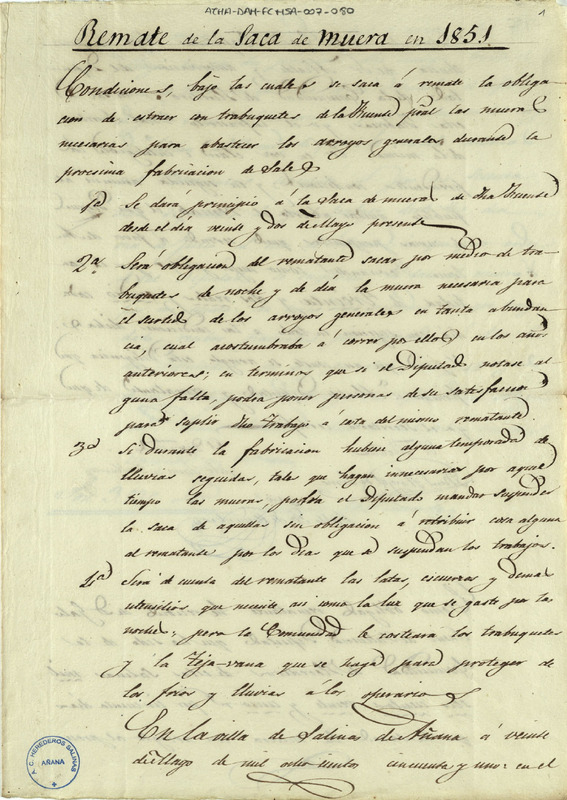 ATHA-DAH-FCMSA-007-080
1
Remate de la Saca de muera en 1851.
Condiciones, bajo las cuales se saca á remate la obliga
cion de estraer con trabuquetes de la Fuente pral las mueras
necesarias para abastecer los arroyos generales durante la
procsima fabricacion de Sales
1ª Se dará principio á la Saca de mueras de dha Fuente
desde el dia veinte y dos de Mayo presente
2ª Será obligacion del rematante sacar por medio de tra-
buquetes de noche y de día la muera necesaria para
el surtido de los arroyos generales en tanta abundan
cia, cual acostumbraba á correr por ellos en los años
anteriores; en terminos que si el Diputado notase al
guna falta, podrá poner personas de su satisfaccion
para suplir dho trabajo á costa del mismo rematante.
3ª Si durante la fabricacion hubiese alguna temporada de
lluvias seguidas, tales que hagan innecesarias por aquel
tiempo las mueras, podrá el Diputado mandar suspender
la saca de aquellas sin obligacion á retribuir cosa alguna
al rematante por los dias que se suspendan los trabajos.
4ª Será de cuenta del rematante las latas, y demas
utensilios que necesite, asi como la luz que se gaste por la
noche; pero la Comunidad le costeará los trabuquetes
y la Teja-vana que se haga para proteger de
los frios y lluvias á los operarios
En la villa de Salinas de Añana á veinte
de Mayo de mil ocho cientos cincuenta y uno: en el
A.C. HEREDEROS SALINAS
AÑANA